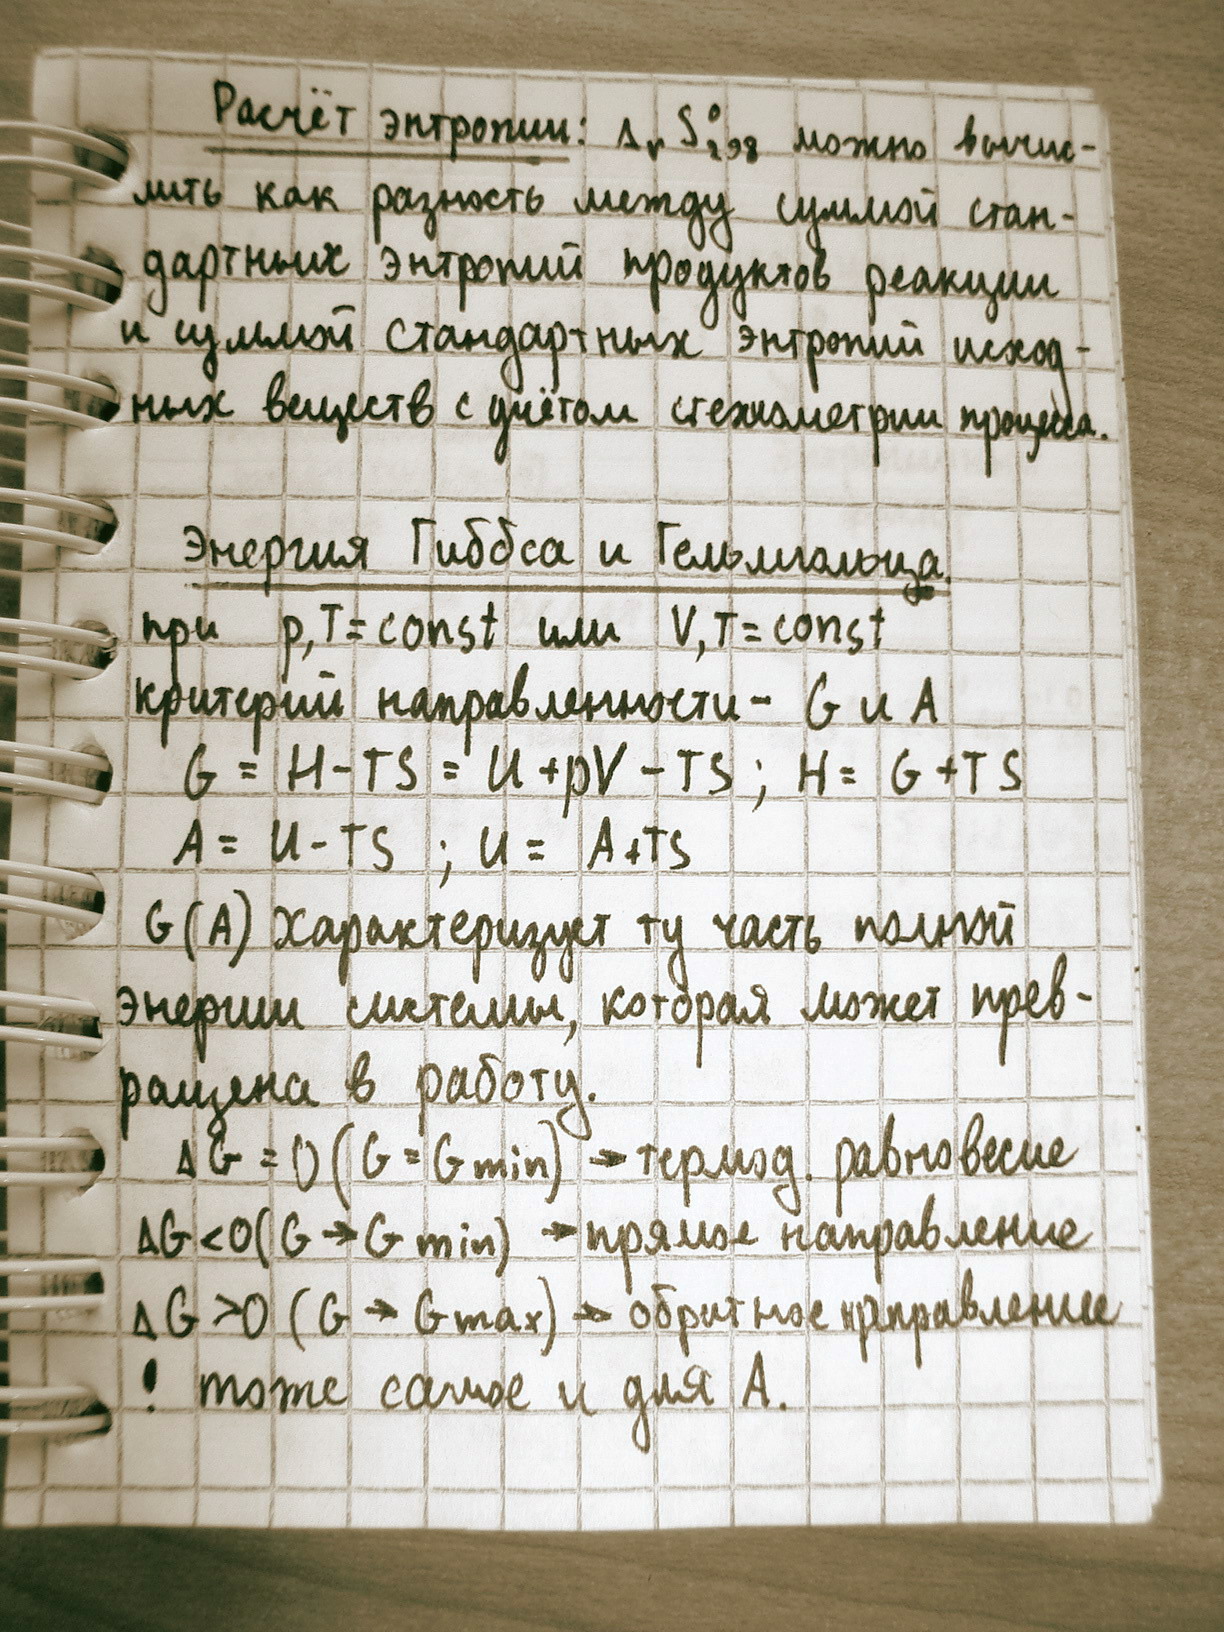 Расчёт энтропии: ΔᵣS°₂₉₈ можно вычис-
лить как разность между суммой стан-
дартных энтропий продуктов реакции
и суммой стандартных энтропий исход-
ных веществ с учётом стехиометрии процесса.
Энергия Гиббса и Гельмгольца.
при p,T=const или V,T=const
критерий направленности - G и A
G = H-TS = U+pV-TS; H= G+TS
A= U-TS ; U= A+TS
G(A) характеризует ту часть полной
энергии системы, которая может прев-
ращена в работу.
ΔG=0(G=Gmin) → термод. равновесие
ΔG<0(G→Gmin) → прямое направление
ΔG>0 (G→Gmax) → обратное направление
! тоже самое и для A.